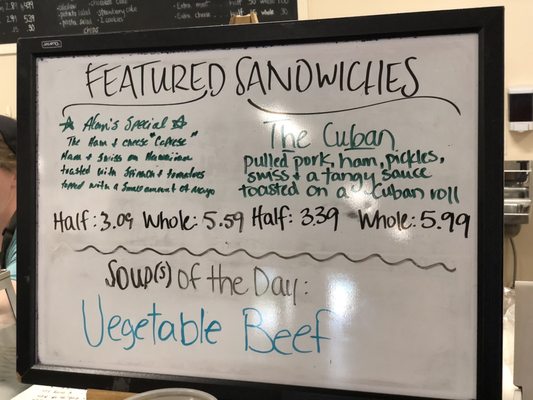 Extra meat
Extra cheese
2 cookies
FEATURED SANDWICHES
Alan's Special
The Ham & cheese "Caprese"
Ham & Swiss on Hawaiian
toasted with Spinach & tomatoes
topped with a small amount of mayo
Half: 3.09 Whole: 5.59
The Cuban
pulled pork, ham, pickles,
swiss & a tangy sauce
toasted on a Cuban roll
Half: 3.39 Whole: 5.99
Soup(s) of the Day:
Vegetable Beef